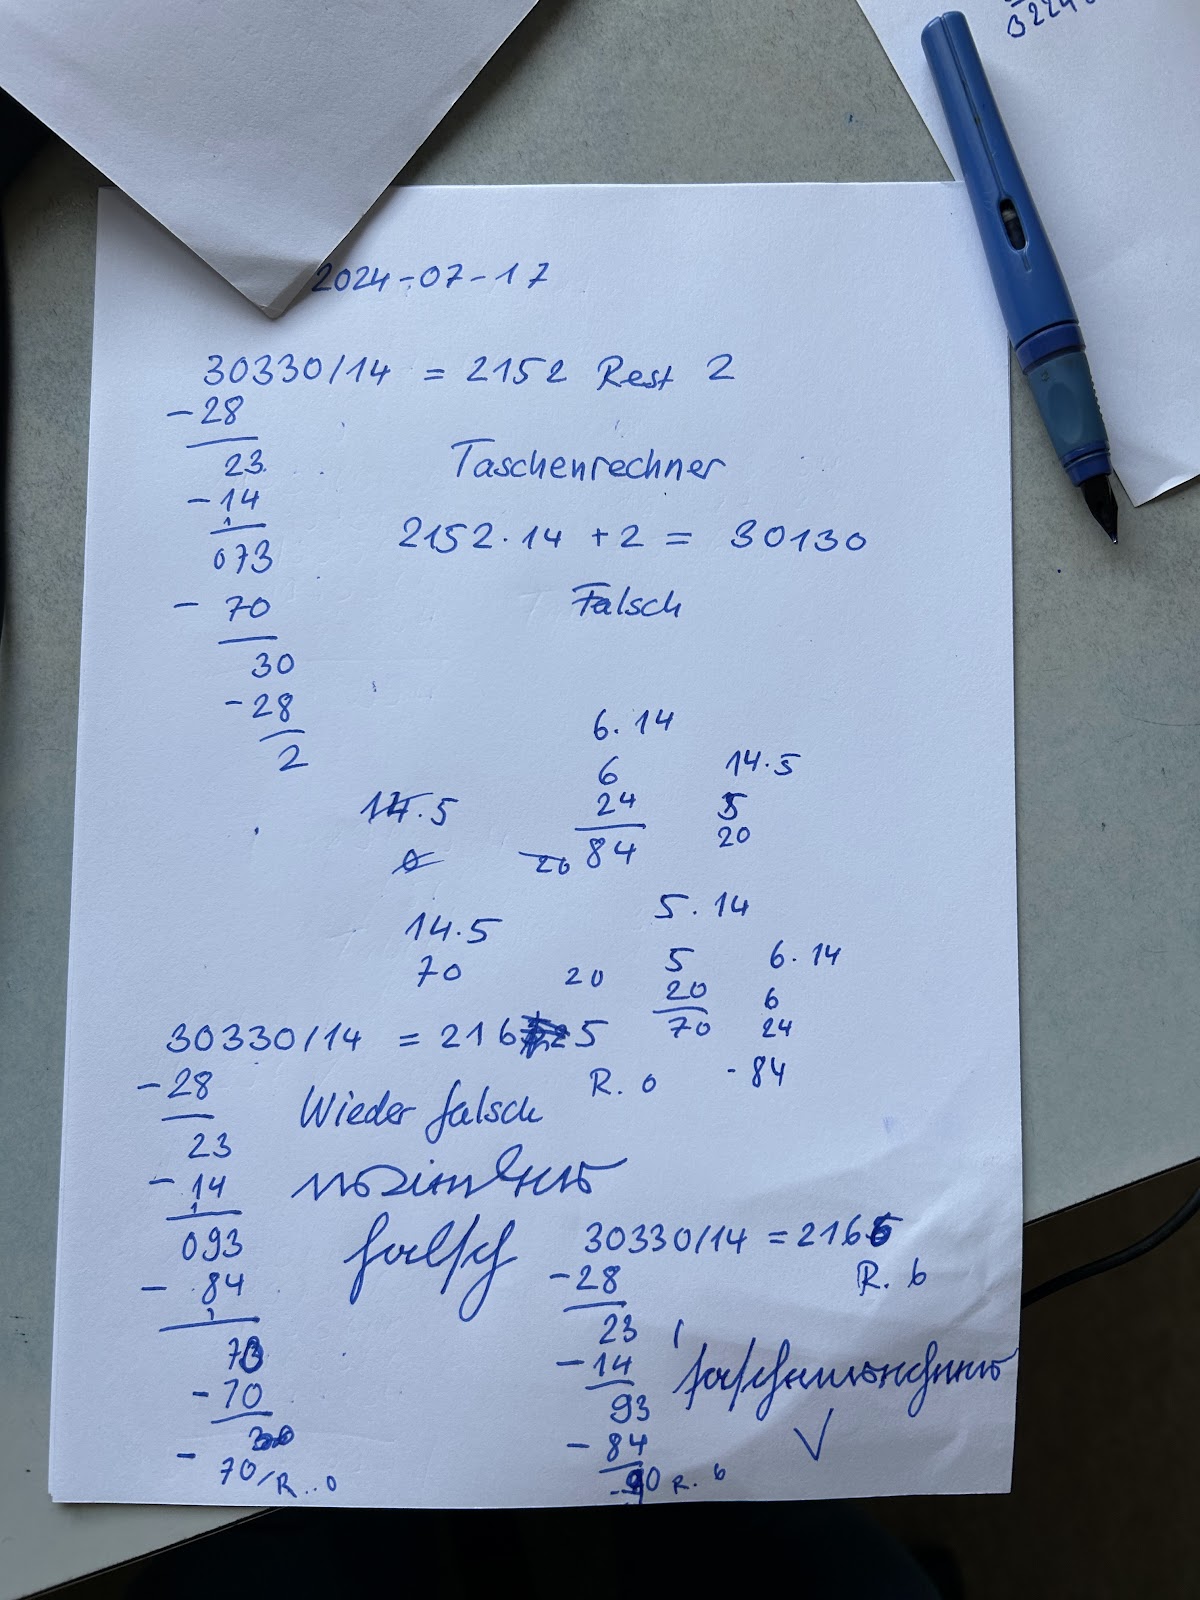 0224
2024-07-17
30330/14 = 2152 Rest 2
-28
23
-14
1
073
- 70
30
-28
2
Taschenrechner
2152·14 +2 = 30130
Falsch
6·14
6
24
84
14·5
5
20
14·5
20
14·5
70
20
5·14
5
20
70
6·14
6
24
-84
30330/14 = 2165
R. 0
-28
23
-14
1
093
- 84
1
70
-70
- 70/R..0
Wieder falsch
falsch
30330/14 = 2166
R. 6
-28
23
-14
93
-84
90 R. 6
Taschenrechner
✓